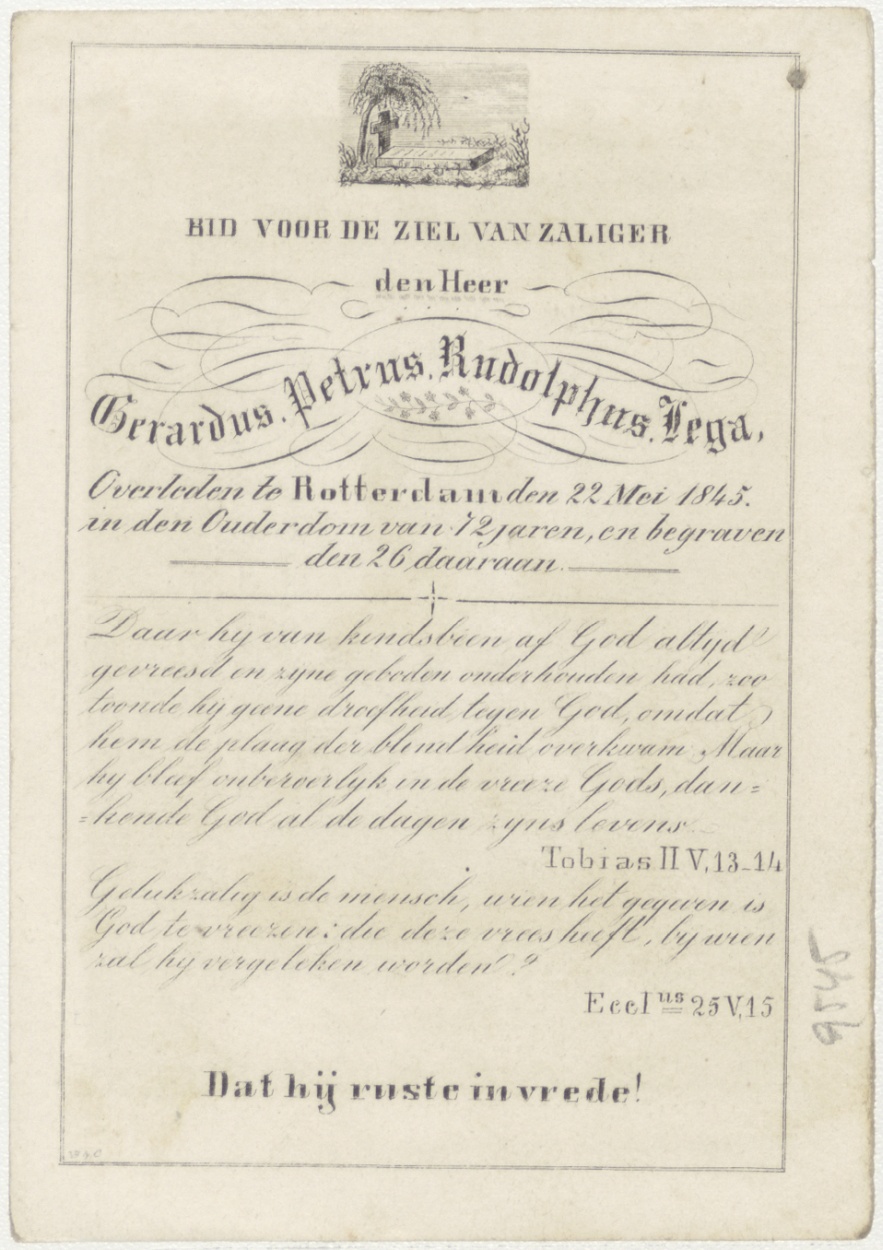 BID VOOR DE ZIEL VAN ZALIGER
den Heer
Gerardus. Petrus. Rudolphus. Tega,
Overleden te Rotterdam den 22 Mei 1845.
in den Ouderdom van 72 jaren, en begraven
den 26 daaraan.
Daar hy van kindsbeen af God altyd
gevreesd en zyne geboden onderhouden had, zoo
toonde hy geene droefheid tegen God, omdat
hem de plaag der blindheid overkwam Maar
hy bleef onberoerlyk in de vreeze Gods, dan=
=kende God al de dagen zyns levens
Tobias II V, 13-14
Gelukzalig is de mensch, wien het gegeven is
God te vreezen: die deze vrees heeft, by wien
zal hy vergeleken worden?
Eccl us 25 V, 15
Dat hij ruste in vrede!